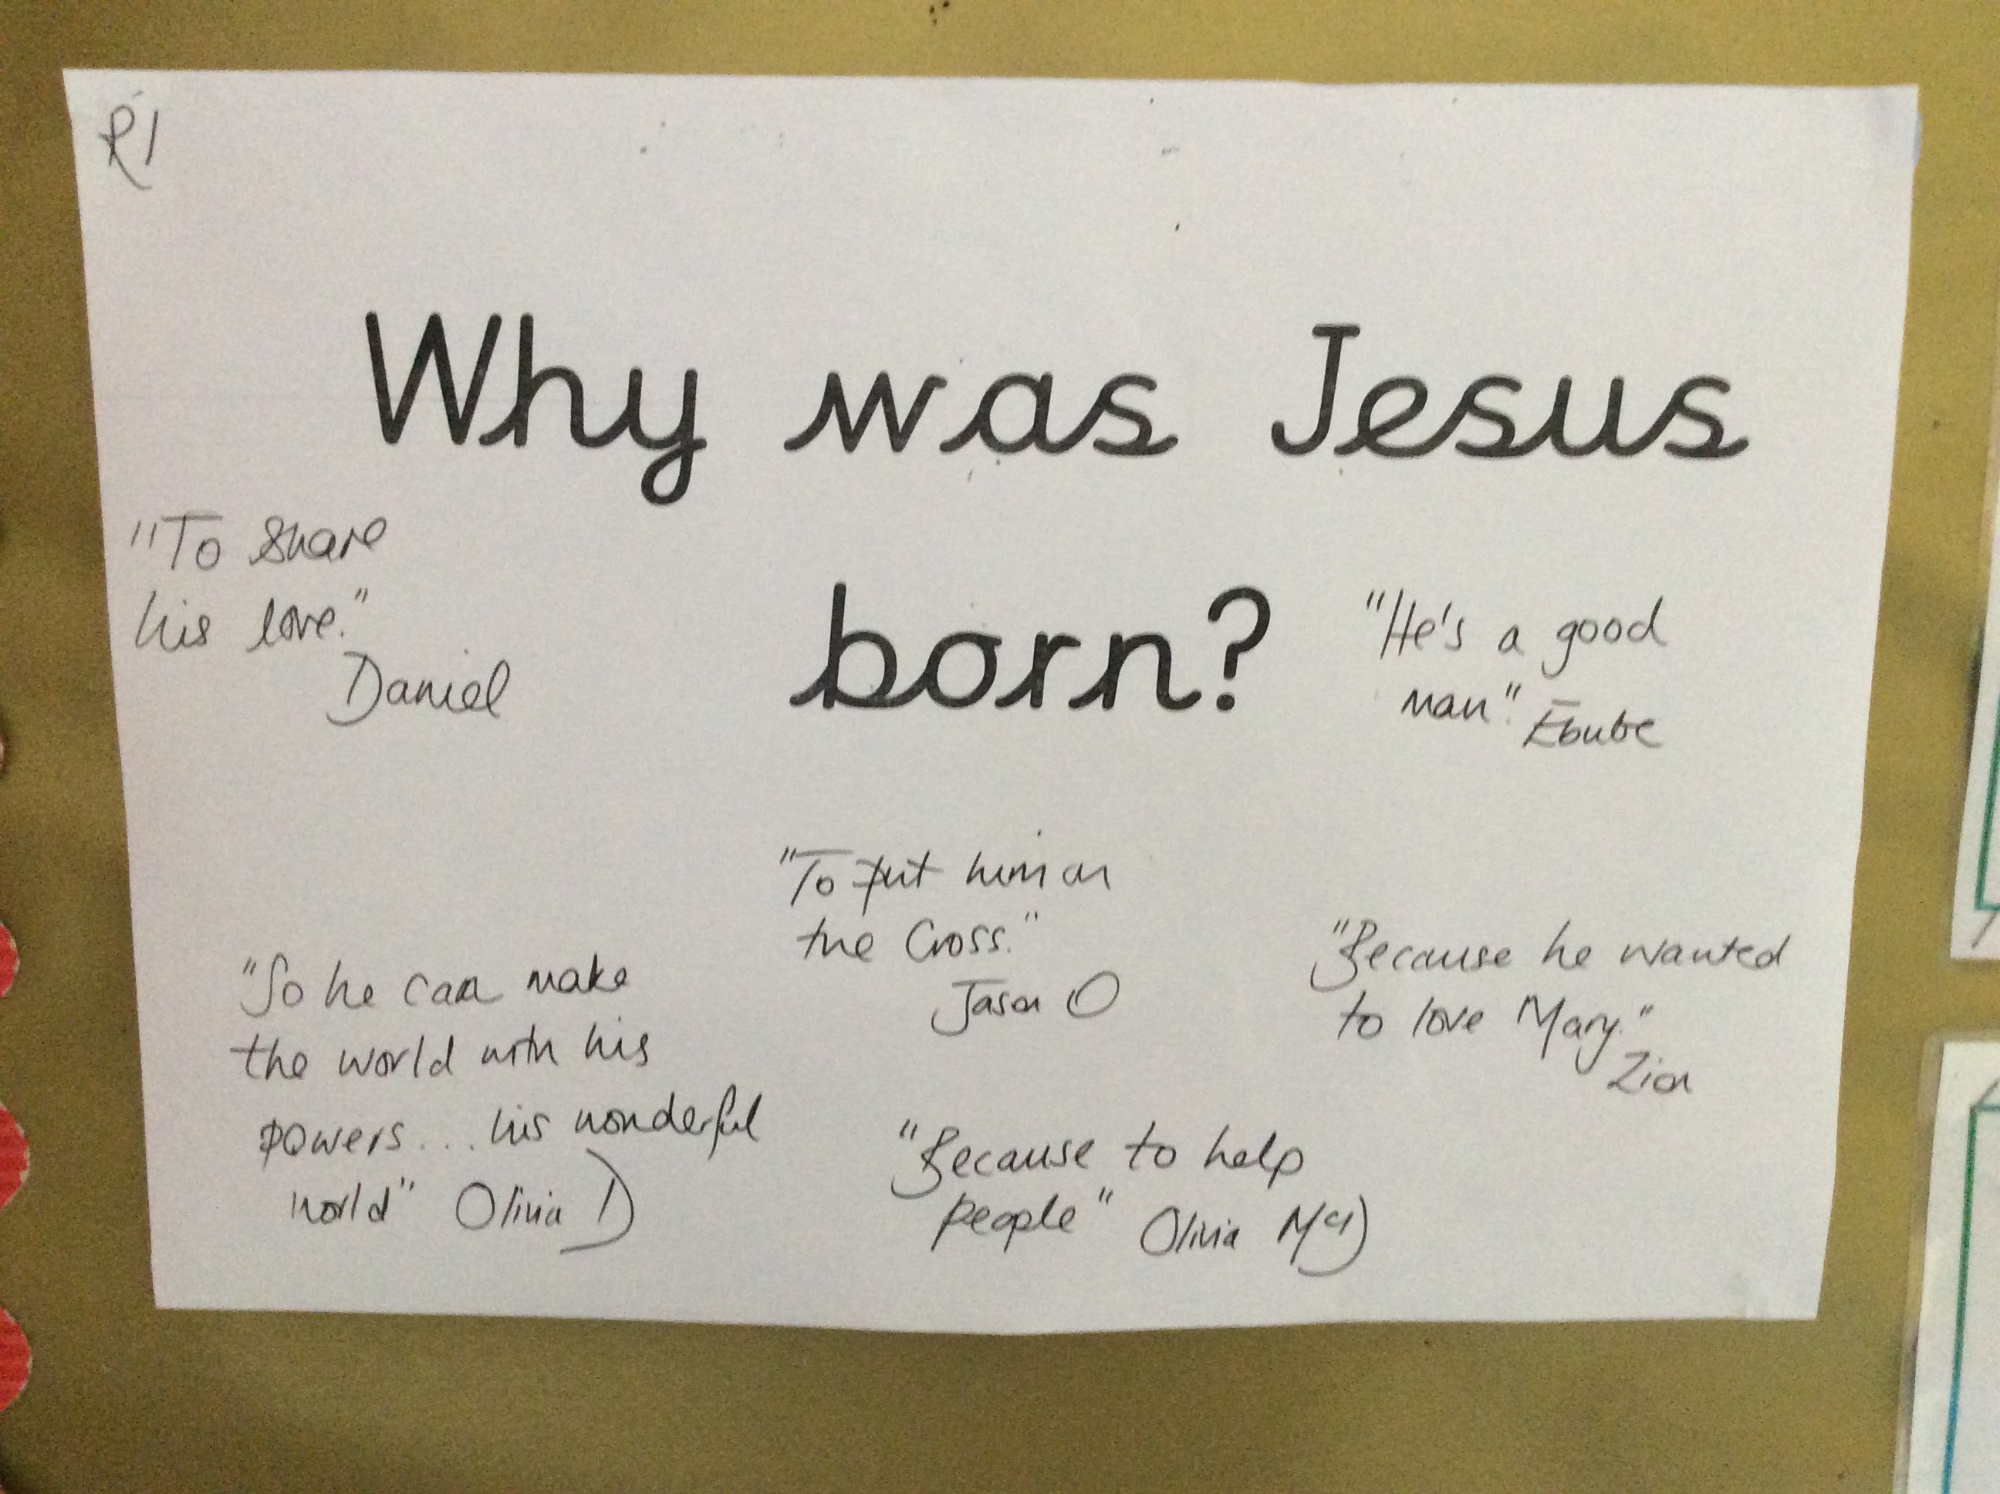 R1
Why was Jesus
born?
"To share
his love."
Daniel
"He's a good
man." Ebube
"To put him on
the Cross."
Jason O
"So he can make
the world with his
powers... his wonderful
world" Olivia D
"Because he wanted
to love Mary."
Zion
"Because to help
people" Olivia McD